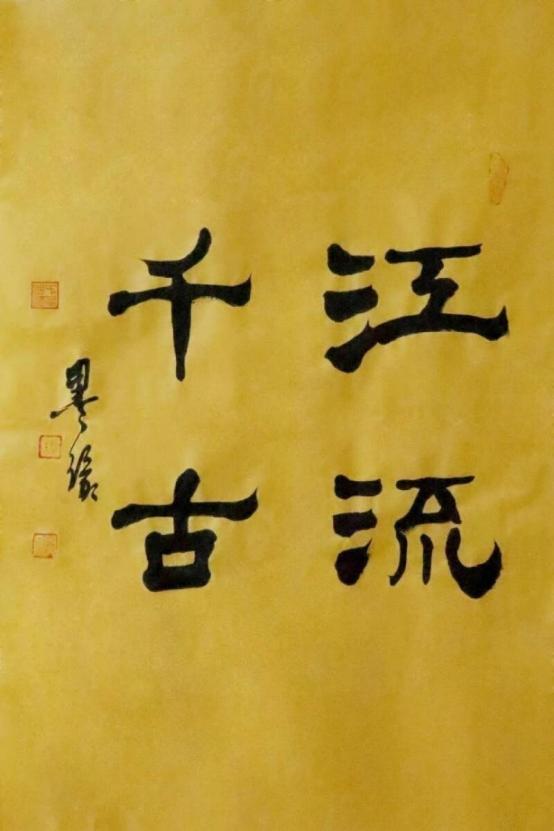 江流
千古
墨缘